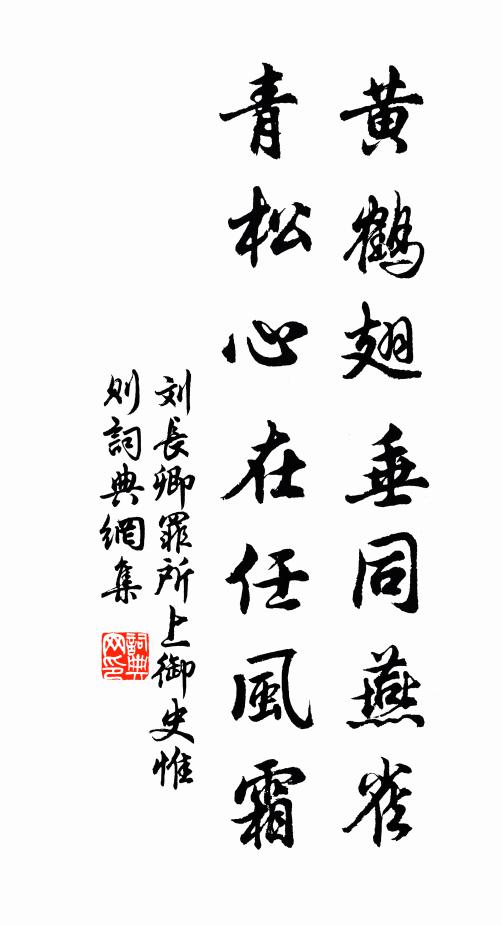 黄鹤翅垂同燕雀
青松心在任風霜
刘長卿罪所上御史惟
则詞典網集
詞典网印